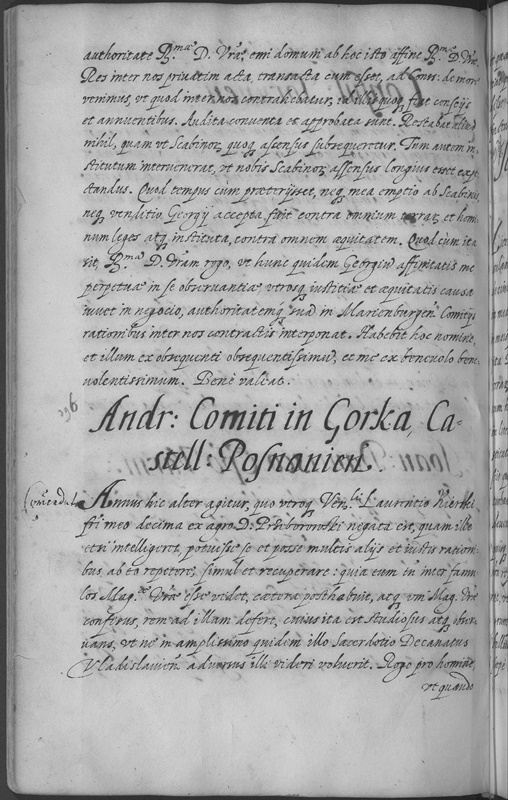 authoritate R.mae D. Vrae. emi domum ab hoc isto affine R.mae D. Vrae.
Res inter nos privatim acta, transacta cum esset, ad Cons: de more
venimus, ut quod inter nos contrahebatur, id illis quoq; fieret consciis
et annuentibus. Audita conventa et approbata sunt. Restabat aliud
nihil, quam ut Scabinor. quoq; assensus subsequeretur. Tum autem in-
stitutum intervenerat, ut nobis Scabinor. assensus longius esset expe-
ctandus. Quod tempus cum praeteriisset, neq; mea emptio ab Scabinis,
neq; venditio Georgij accepta fuit contra omnium terrar. et homi-
num leges atq; instituta, contra omnem aequitatem. Quod cum ita
sit, R.mam D. Vram rogo, ut hunc quidem Georgiu affinitatis me
perpetuae in se observantiae utrosq; iustitiae et aequitatis causa
iuvet in negocio, authoritatemq; sua in Marienburgen. Comitijs
rationibus inter nos contractis interponat. Habebit hoc nomine,
et illum ex obsequenti obsequentissimu, et me ex benevolo bene
volentissimum. Bene valeat.
196
Andr: Comiti in Gorka, Ca-
stell: Posnanien.
Comendat
Annus hic alter agitur, quo utroq; Ven.li Laurentio Kierski
fri meo decima ex agro D. Prziborowski negata est, quam ille
etsi intelligeret, potuisse se et posse multis alijs et iustis rationi-
bus ab eo repetere, simul et recuperare: quia eum in inter famu
los Mag.ae Vrae esse videt, caetera posthabuit, atq; um Mag. Vra
confisus, rem ad illam defert, cuius ita est studiosus atq; obser
vans, ut ne in amplissimo quidem illo Sacerdotio Decanatus
Vladislavien. adversus illi videri voluerit. Rogo pro homine,
ut quando